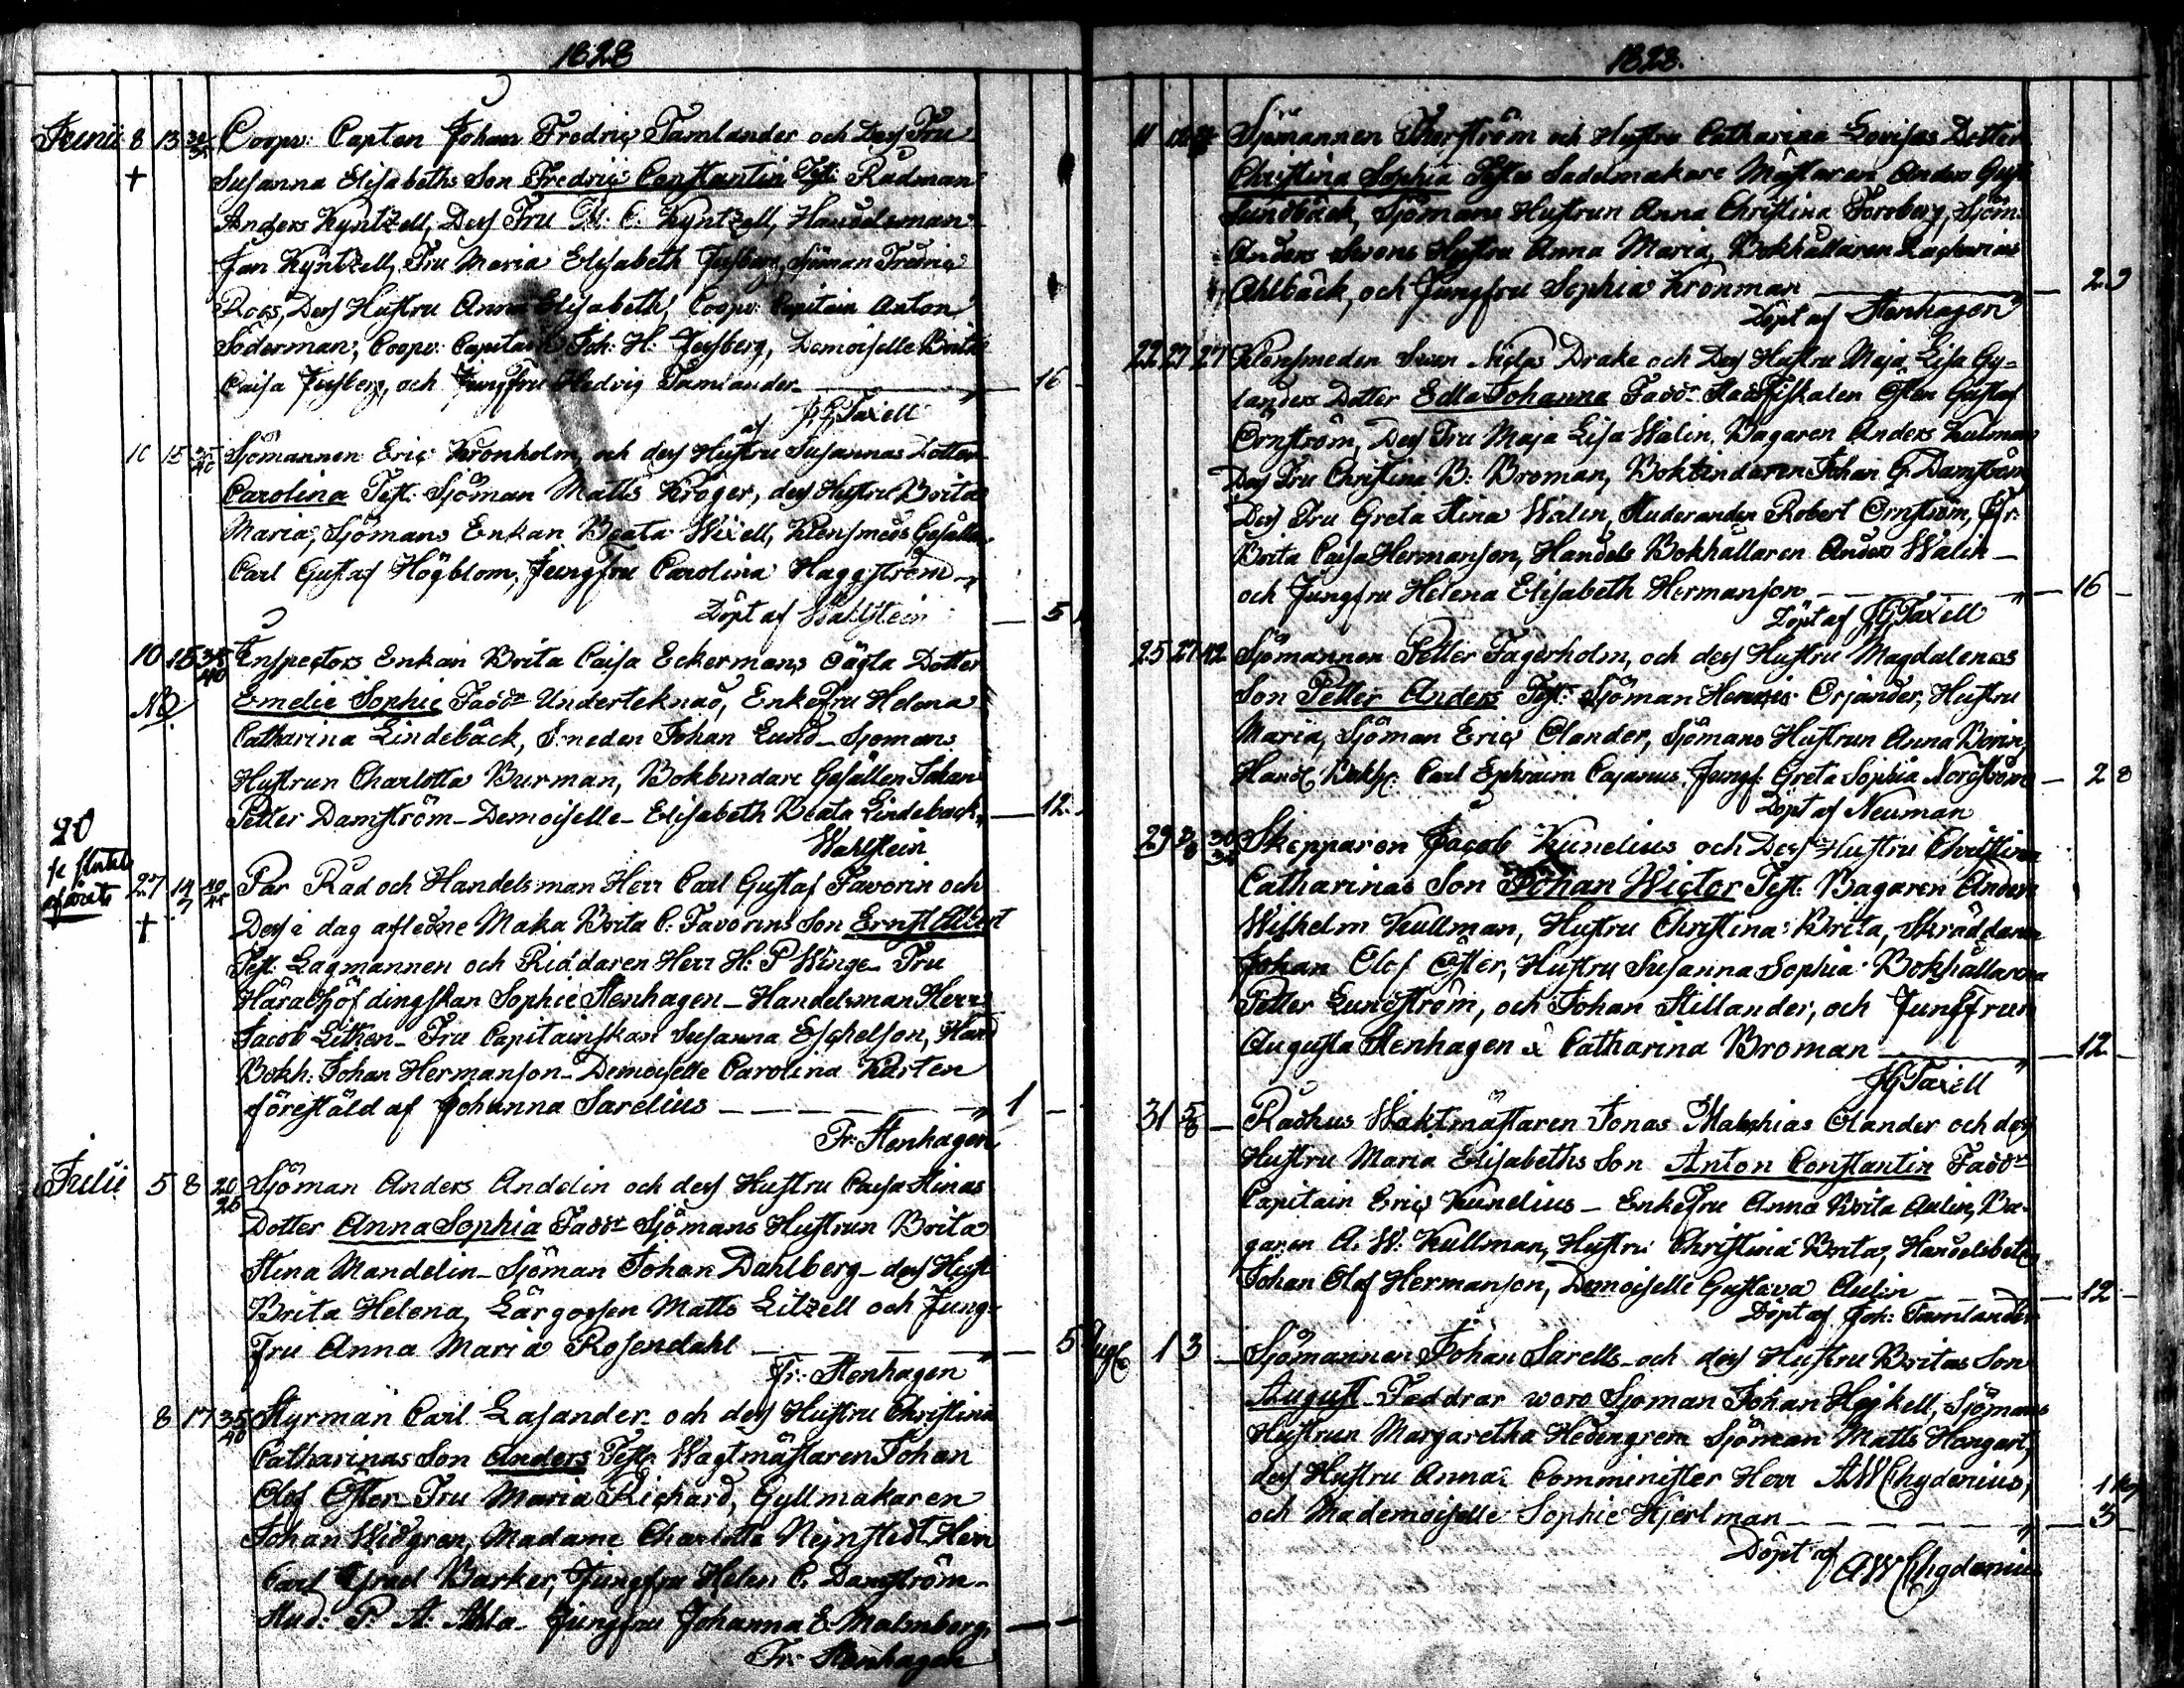 1828
Junii 8 13 30/35 Coopv: Capten Johan Fredric Tamlander och Dess Fru
+ Susanna Elisabeths Son Fredric Constantin Test: Rådman
Anders Kyntzell, Dess Fru C. Kyntzell, Handelsman
Jan Kyntzell, Fru Maria Elisabeth Sjöman Fredric
Roos, Dess Hustru Anna Elisabeth, Coopv: Capitain Anton
Söderman, Coopv: Capitain Joh: H: Demoiselle Brita
Caisa och Jungfru Hedvig Tamlander 16
af JGTaxell
10 15 35/40 Sjömannen Eric Kronholm och dess Hustru Susannas Dotter
Carolina Test: Sjöman Matts Kröger, dess Hustru Brita
Maria, Sjömans Enkan Beata Wixell, Klensmeds Gesällen
Carl Gustaf Högblom, Jungfru Carolina Haggström
Döpt af Wahlstein 5
10 15 35/40 Inspectors Enkan Brita Caisa Eckermans oägta Dotter
NB Emelie Sophie Faddr Underteknad, Enkefru Helena
Catharina Lindebäck, Smeden Johan Lund Sjömans
Hustrun Charlotta Burman, Bokbindare Gesällen Johan
Petter Damström Demoiselle Elisabeth Beata Lindeback 12
Wahlstein
20
27 14/7 40/45 Par Råd och Handelsman Herr Carl Gustaf Favorin och
+ Dess i dag afledne Maka Brita C. Favorins Son Ernst Albert
Test: Lagmannen och Riddaren Herr H: P Winge Fru
Häradshöfdingskan Sophie Stenhagen Handelsman Herr
Jacob Litken Fru Capitainskan Susanna Eschelson, Hand
Bokh: Johan Hermanson Demoiselle Carolina Kärten
föreställd af Johanna Sarelius 1
Fr: Stenhagen
Julii 5 8 20/25 Sjöman Anders Andelin och dess Hustru Caisa Stinas
Dotter Anna Sophia Faddr Sjömans Hustrun Brita
Stina Mandelin Sjöman Johan Dahlberg dess Hustr
Brita Helena, Lärgossen Matts Litzell och Jung-
fru Anna Maria Rosendahl 5
Fr: Stenhagen
8 17 35/40 Styrman Carl Lasander och dess Hustru Christina
Catharinas Son Anders Test: Wagtmästaren Johan
Olof Öster Fru Maria Richard, Gyllmakaren
Johan Widgren, Madame Charlotta Nejnstedt Herr
Carl Barker, Jungfru Helen C. Damström
Stud: P. A: Jungfru Johanna E. Malmberg
Fr: Stenhagen
1828.
11 Sjömannen Thorström och Hustru Catharina Lovisas Dotter
Christina Sophia Testes Sadelmakare Mästaren Anders Gust
Sundbäck, Sjömans Hustrun Anna Christina Forsberg, Sjöm:
Anders Hustru Anna Maria, Bokhållaren Zacharias
Ahlbäck, och Jungfru Sophia Kronman 2 9
Döpt af Stenhagen
22 27 27 Klensmeden Swen Drake och Dess Hustru Maja Lisa Gy-
landers Dotter Edla Johanna Faddr Stadsfiskalen Gustaf
Örnström, Dess Fru Maja Lisa Walin, Bagaren Anders Kulman
Dess Fru Christina B: Broman, Bokbindaren Johan G. Damström
Dess Fru Greta Stina Walin, Studeranden Robert Örnström,
Brita Caisa Hermanson, Handels Bokhållaren Anders Walin
och Jungfru Helena Elisabeth Hermanson 16
Döpt af JGTaxell
25 27 42 Sjömannen Petter Fagerholm, och dess Hustru Magdalenas
Son Petter Anders Test: Sjöman Orjander, Hustru
Maria, Sjöman Eric Olander, Sjömans Hustrun Anna
Hand Bokh: Carl Ephraim Cajanus Jungf: Greta Sophia Norström 2 8
Döpt af Neuman
29 30/35 Skepparen Jacob Kunelius och Dess Hustru Christina
Catharinas Son Johan Wictor Test: Bagaren Anders
Wilhelm Kullman, Hustru Christina Brita, Skräddaren
Johan Olof Öster, Hustru Susanna Sophia Bokhållarena
Petter Lundström, och Johan Stillander, och Jungfrun
Augusta Stenhagen & Catharina Broman 12
JGTaxell
31 5/8 Rådhus Waktmästaren Jonas Mathias Olander och dess
Hustru Maria Elisabeths Son Anton Constantin Faddr
Capitain Eric Kunelius Enkefru Anna Brita Aulin, Ba-
garen A. W. Kullman, Hustru Christina Brita, Handelsbetj
Johan Olof Hermanson, Demoiselle Gustava Aulin 12
Döpt af Joh: Tamlander
Aug 1 3 Sjömannen Johan Sarells och dess Hustru Britas Son
August Faddrar woro Sjöman Johan Hejkell, Sjömans
Hustrun Margaretha Hedengren Sjöman Matts
dess Hustru Anna Comminister Herr AWChydenius,
och Mademoiselle Sophie Hjertman 3
Döpt af AWChydenius